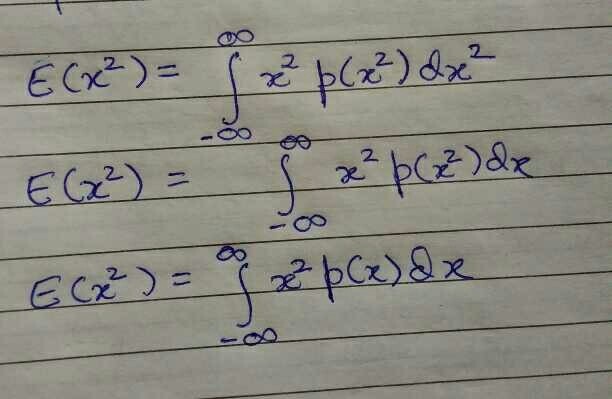 E(x²) = ∫_{-∞}^{∞} x² p(x²) dx²
E(x²) = ∫_{-∞}^{∞} x² p(x²) dx
E(x²) = ∫_{-∞}^{∞} x² p(x) dx